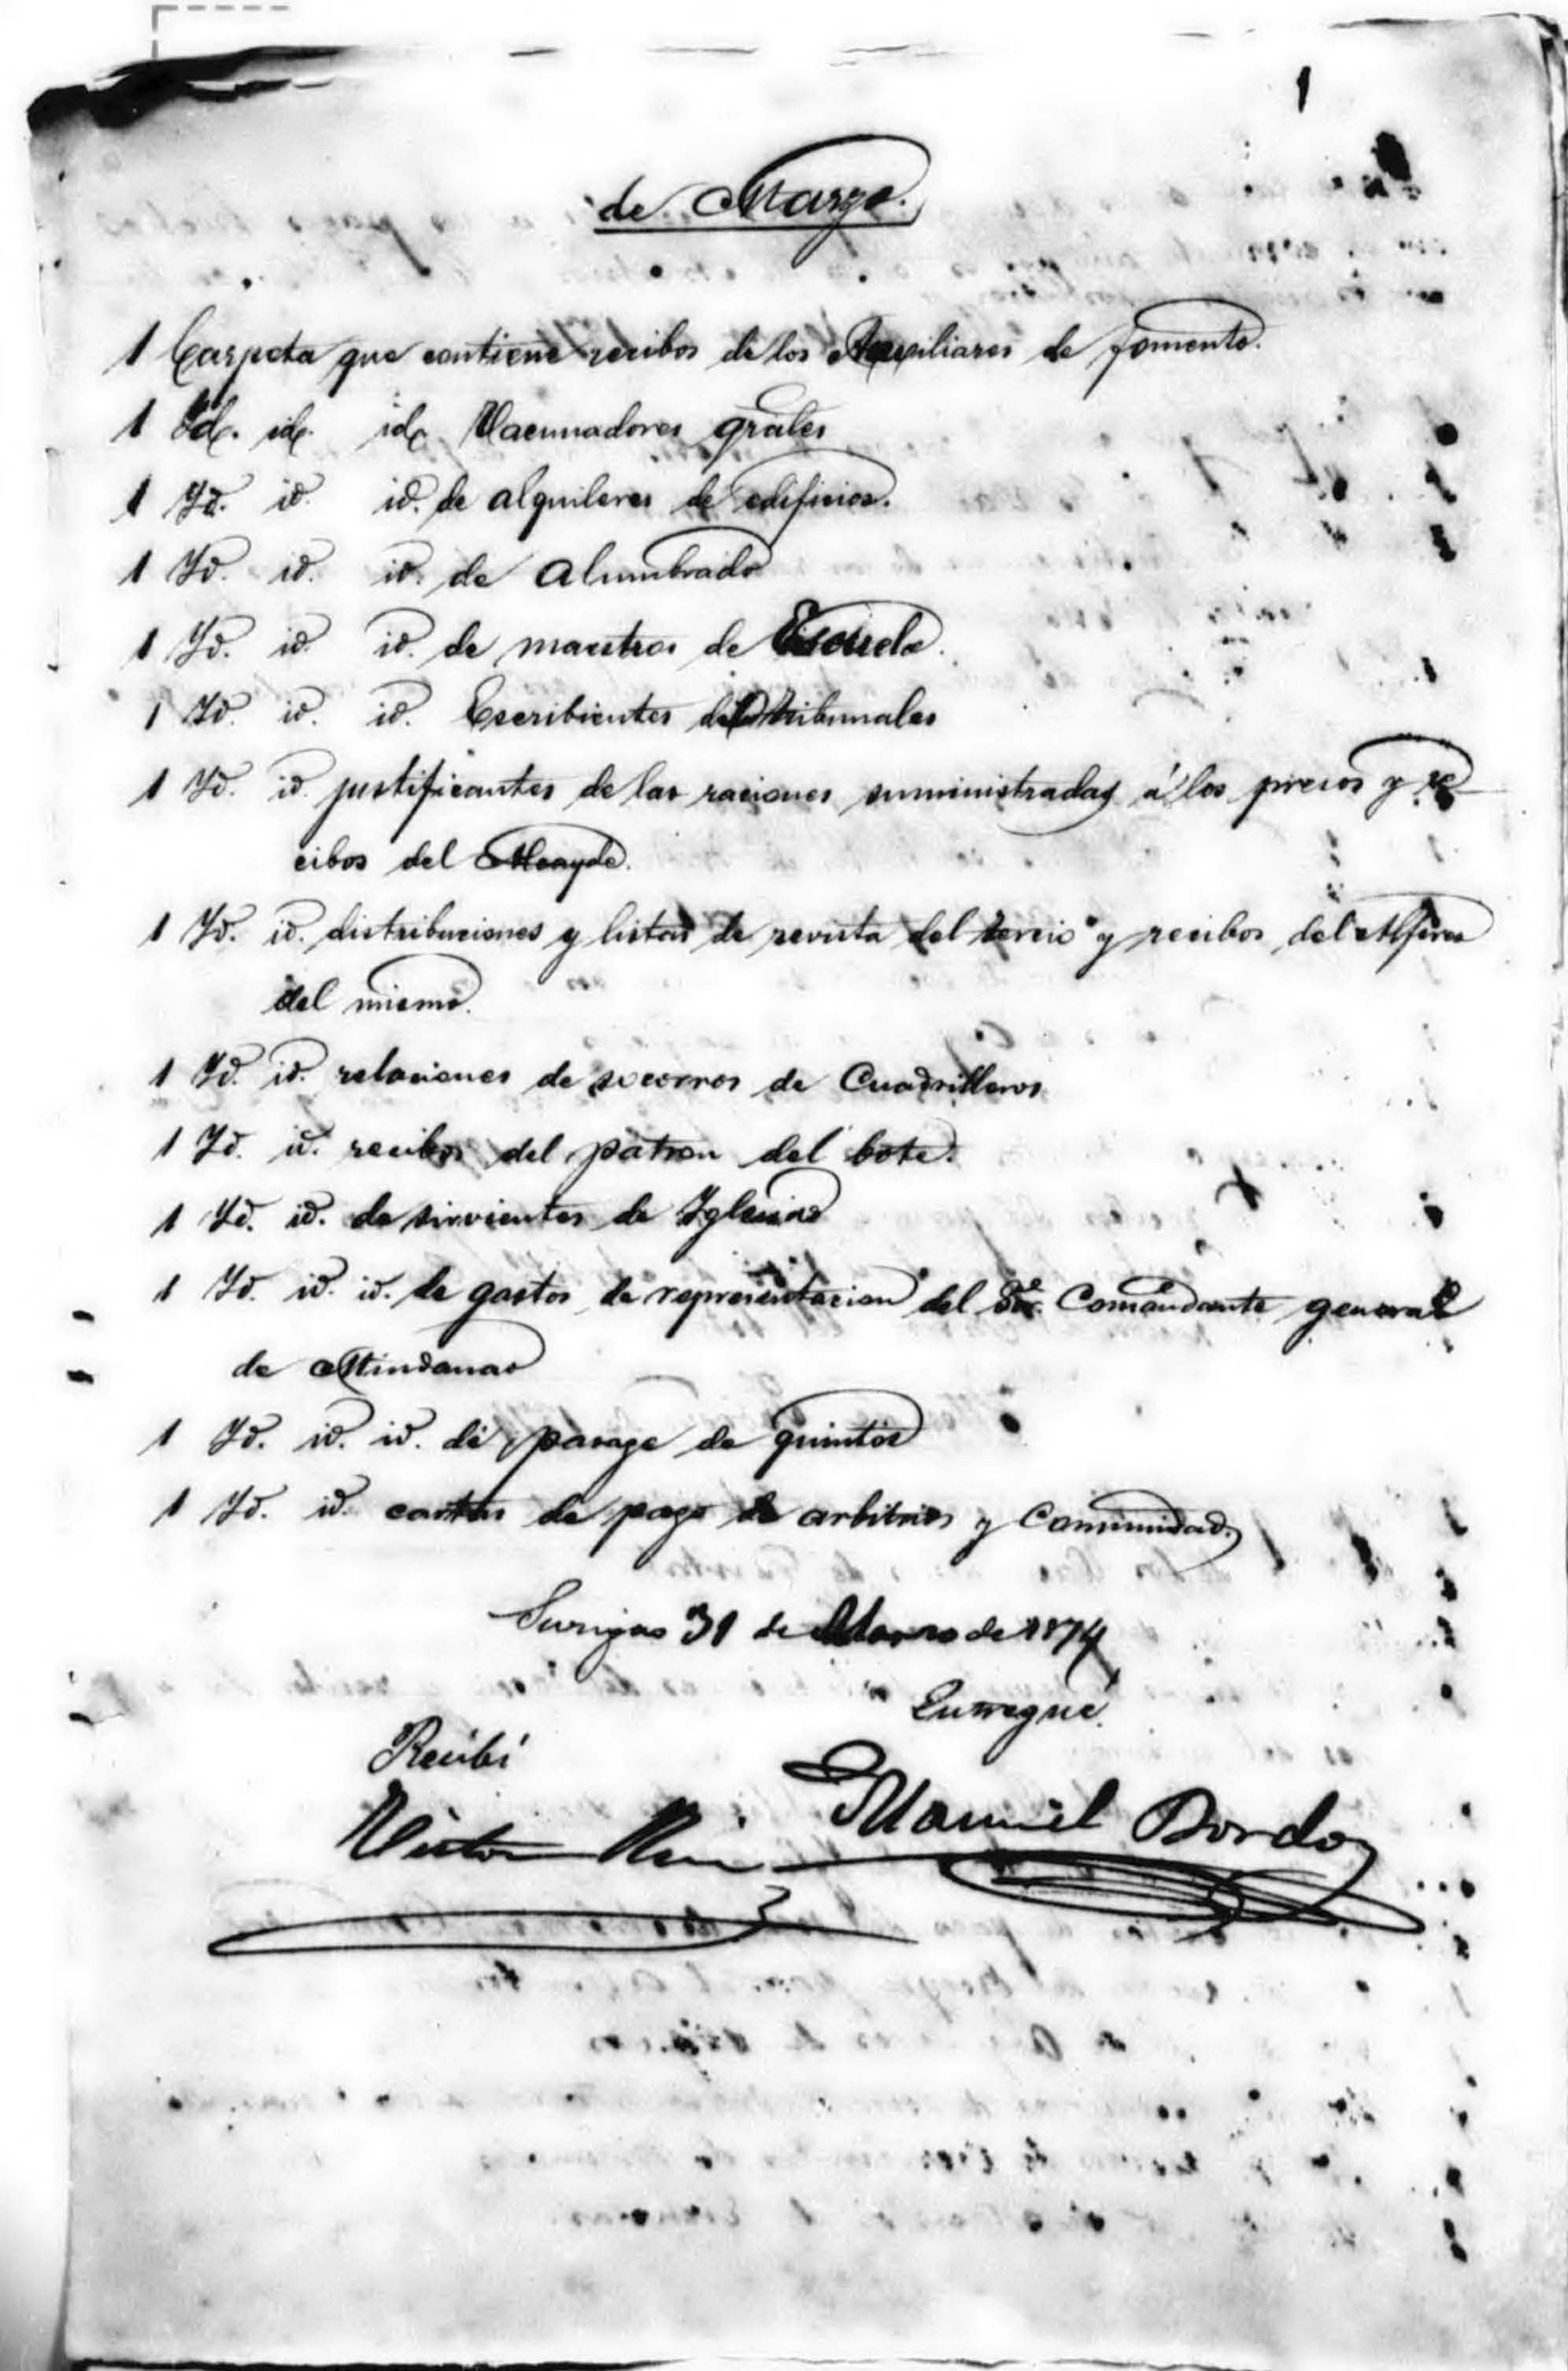 1
de Marzo.
1 Carpeta que contiene recibos de los Auxiliares de fomento.
1 Id. id. id. Vacunadores grales
1 Yd. id. id. de alquileres de edificios.
1 Yd. id. id. de alumbrado
1 Yd. id. id. de maestros de Escuela.
1 Yd. id. id. Escribientes de tribunales
1 Yd. id. justificantes de las raciones suministradas á los presos y re
cibos del Alcayde.
1 Yd. id. distribuciones y listas de revista del tercio y recibos del Alferes
del mismo.
1 Yd. id. relaciones de socorros de Cuadrilleros
1 Yd. id. recibos del patron del bote.
1 Yd. id. de sirvientes de Yglesias
1 Yd. id. id. de gastos de representacion del Sor. Comandante general
de Mindanao
1 Yd. id. id. de pasage de quintos
1 Yd. id. cartas de pago de arbitrios y Comunidad.
Surigao 31 de Marzo de 1874
Entregué.
Recibí
Manuel Bordo
Victor